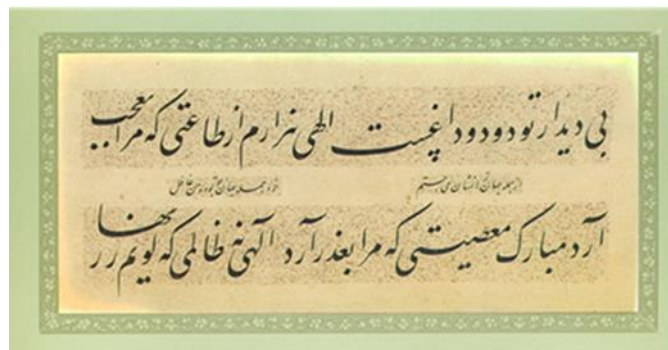 بی دیدار تو دود و داغست الهی بیزارم از طاعتی که مرا بعجب
از جمله جهان ترا نشان می جستم جمله جهان تو من غافل
آرد مبارک معصیتی که مرا بعذر آرد الهی نه ظالمی که گویم زنهار